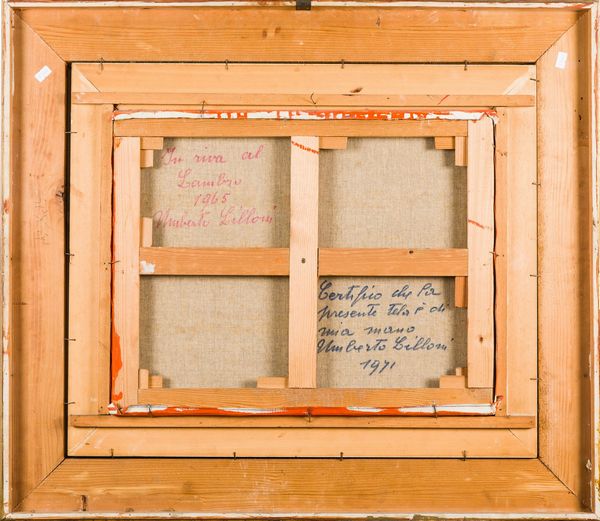 In riva al
Lambro
1965
Umberto Lilloni
Certifico che la
presente tela è di
mia mano
Umberto Lilloni
1971